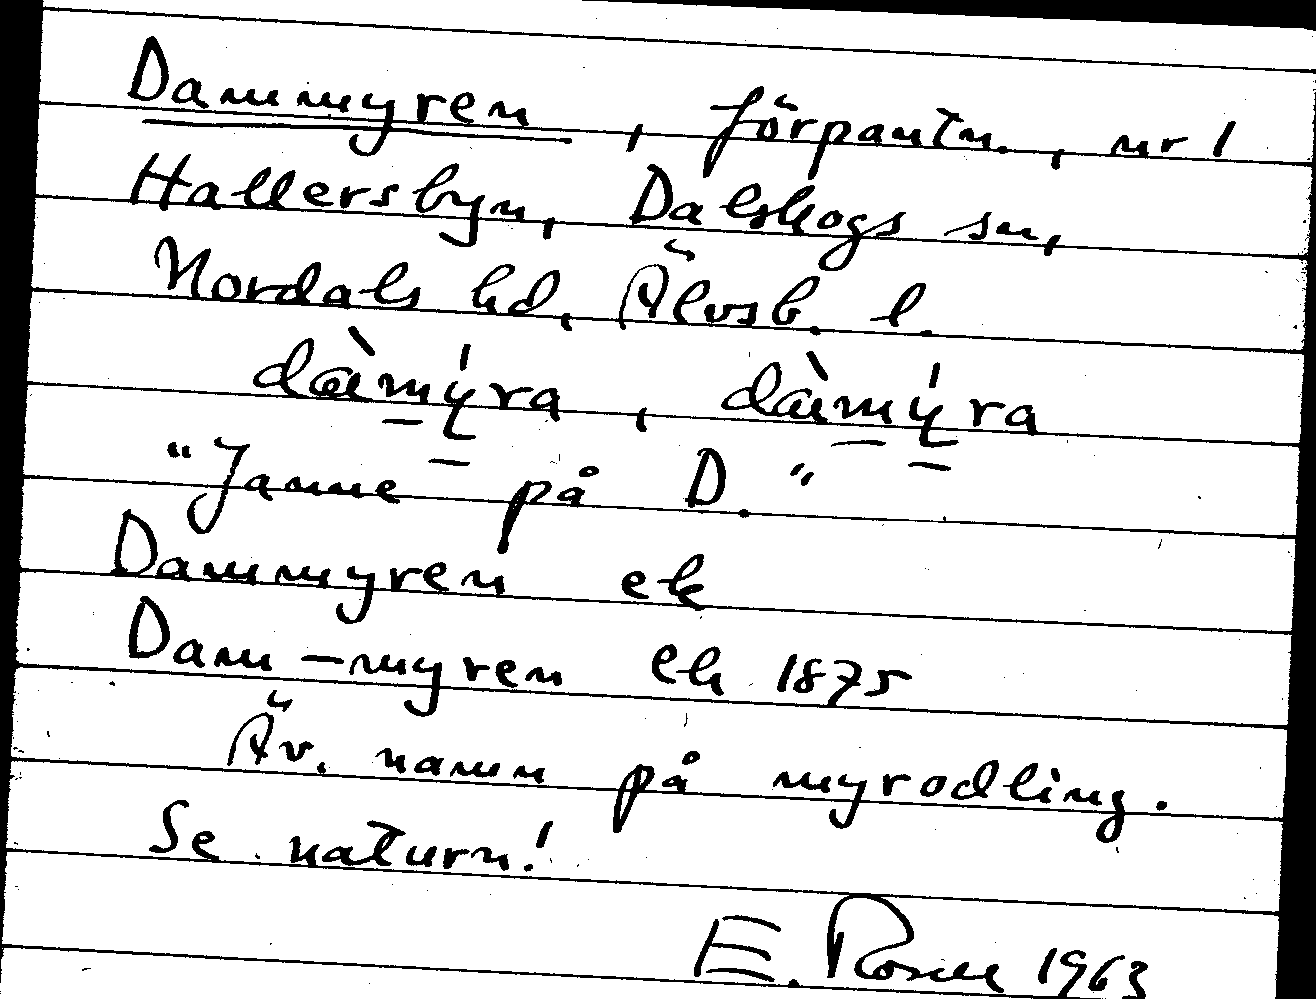 Dammyren, förpantn., nr 1
Hallersbyn, Dalskogs sn,
Nordals hd, Älvsb. l.
dàmýra, dàmýra
"Janne på D."
Dammyren ek
Dam-myren ek 1875
Äv. namn på myrodling.
Se naturn!
E. Rosell 1963